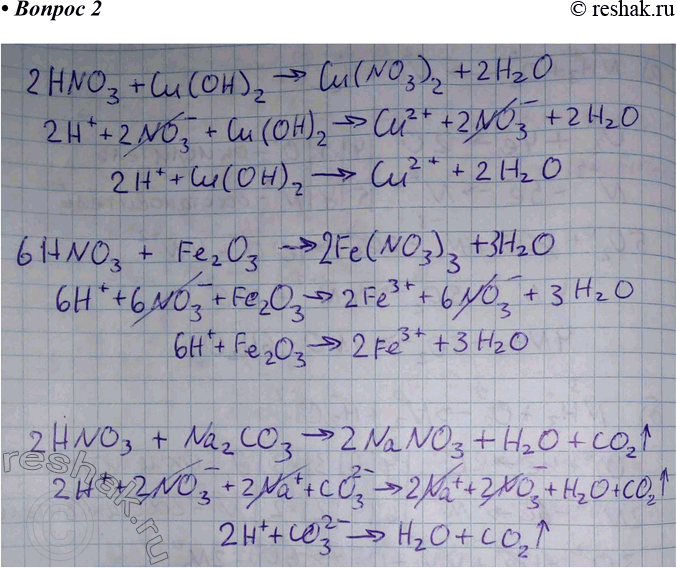 • Вопрос 2
© reshak.ru
2HNO₃ + Cu(OH)₂ → Cu(NO₃)₂ + 2H₂O
2H⁺ + 2NO₃⁻ + Cu(OH)₂ → Cu²⁺ + 2NO₃⁻ + 2H₂O
2H⁺ + Cu(OH)₂ → Cu²⁺ + 2H₂O
6HNO₃ + Fe₂O₃ → 2Fe(NO₃)₃ + 3H₂O
6H⁺ + 6NO₃⁻ + Fe₂O₃ → 2Fe³⁺ + 6NO₃⁻ + 3H₂O
6H⁺ + Fe₂O₃ → 2Fe³⁺ + 3H₂O
2HNO₃ + Na₂CO₃ → 2NaNO₃ + H₂O + CO₂↑
2H⁺ + 2NO₃⁻ + 2Na⁺ + CO₃²⁻ → 2Na⁺ + 2NO₃⁻ + H₂O + CO₂↑
2H⁺ + CO₃²⁻ → H₂O + CO₂↑
reshak.ru
©